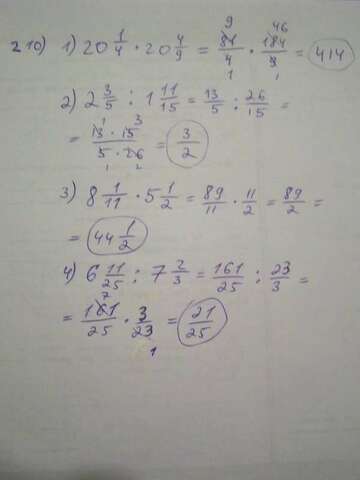 210) 1) 20 1/4 · 20 4/9 = 81/4 · 184/9 = 414
2) 2 3/5 : 1 11/15 = 13/5 : 26/15 =
= 13 · 15 / 5 · 26 = 3/2
3) 8 1/11 · 5 1/2 = 89/11 · 11/2 = 89/2 =
= 44 1/2
4) 6 11/25 : 7 2/3 = 161/25 : 23/3 =
= 161/25 · 3/23 = 21/25